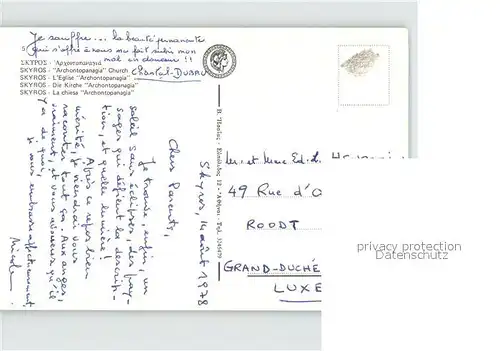 Je souffre... la beauté permanente
qui s'offre à nous me fait subir mon
mal en douceur !!
ΣΚΥΡΟΣ - 'Αρχοντοπαναγιά
SKYROS - "Archontopanagia" Church
SKYROS - L'Eglise "Archontopanagia"
SKYROS - Die Kirche "Archontopanagia"
SKYROS - La chiesa "Archontopanagia"
Skyros, 14 août 1978
Chers Parents,
Je trouve, enfin, un
soleil sans éclipses, des pay-
sages qui défient la descrip-
tion, et quelle lumière !
Après ce repos bien
mérité, je viendrai vous
raconter tout ça. Aux anges,
vraiment, et vous avouerez qu'il
y a de quoi,
je vous embrasse affectueusement,
Mr et Mme Ed.
49 Rue d'
ROODT
GRAND-DUCHÉ
LUXE
privacy protection
Datenschutz